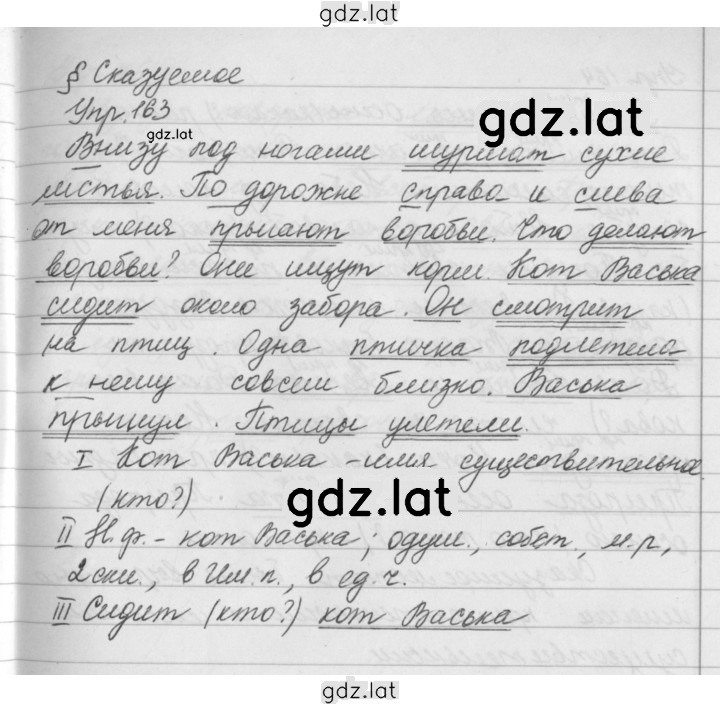 gdz.lat
§ Сказуемое
Упр. 163
gdz.lat
gdz.lat
Внизу под ногами шуршат сухие
листья. По дорожке справа и слева
от меня прыгают воробьи. Что делают
воробьи? Они ищут корм. Кот Васька
сидит около забора. Он смотрит
на птиц. Одна птичка подлетела
к нему совсем близко. Васька
прыгнул. Птицы улетели.
I Кот Васька - имя существительное
(кто?)
gdz.lat
II Н.ф. - кот Васька; одуш., собст., м.р.,
2 скл., в Им.п., в ед.ч.
III Сидит (кто?) кот Васька
gdz.lat